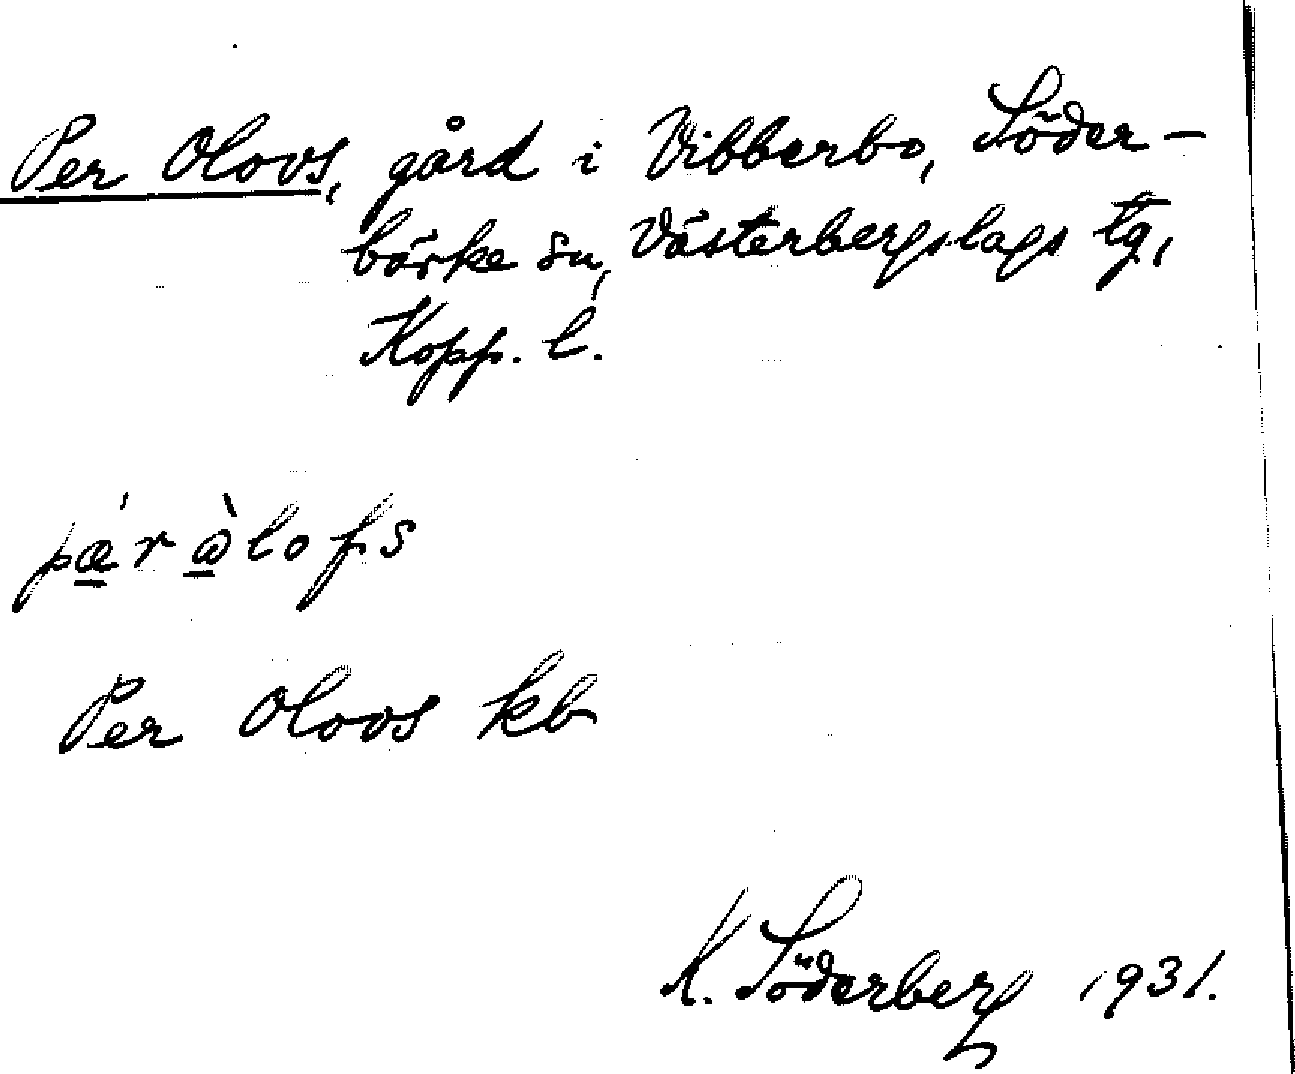 Per Olovs, gård i Vibberbo, Söder-
bärke sn, Västerbergslags tg,
Kopp. l.
pǽr æ̀lofs
Per Olovs kb
K. Söderberg 1931.